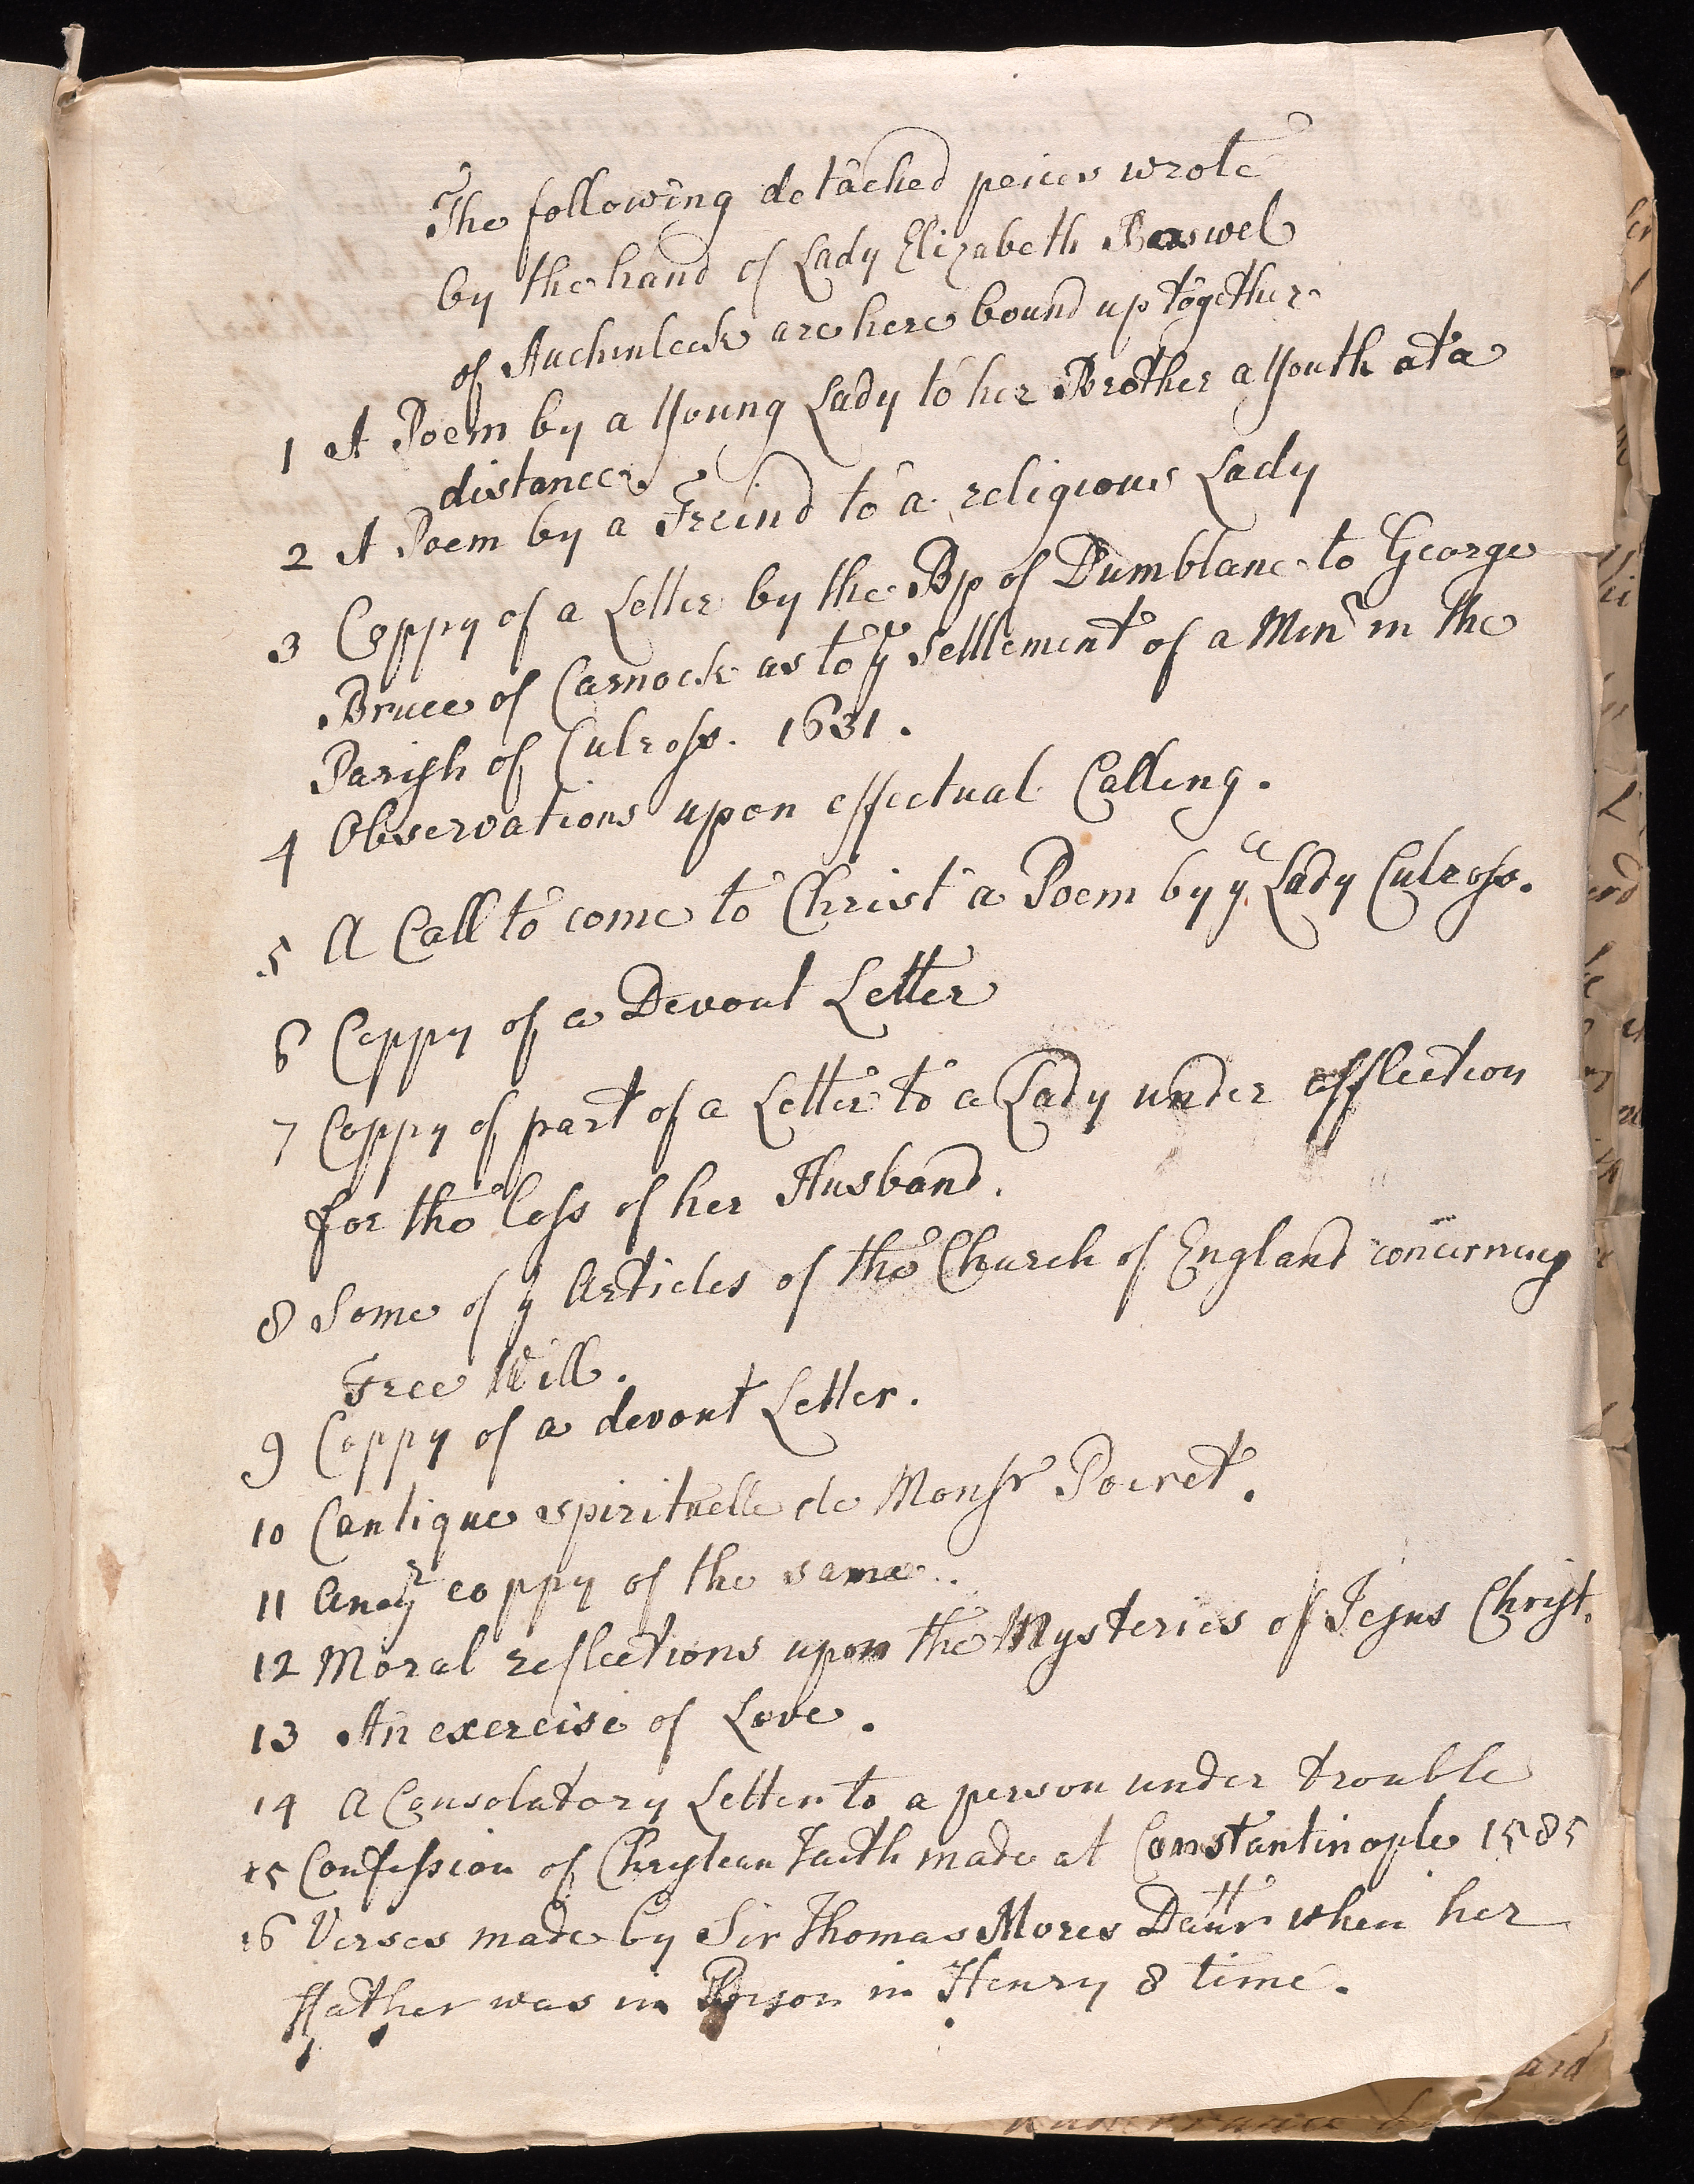 The following detached peices wrote
by the hand of Lady Elizabeth Boswel
of Auchinleck are here bound up together
1 A Poem by a Young Lady to her Brother a Youth at a
distance
2 A Poem by a Freind to a religious Lady
3 Coppy of a Letter by the Bp of Dumblane to George
Bruce of Carnock as to ye settlement of a Minr in the
Parish of Culross. 1631.
4 Observations upon effectual Calling.
5 A Call to come to Christ a Poem by ye Lady Culross.
6 Coppy of a Devout Letter
7 Coppy of part of a Letter to a Lady under affliction
for the loss of her Husband.
8 Some of y Articles of the Church of England concerning
Free Will.
9 Coppy of a devout Letter.
10 Cantique spirituelle de Monsr Poiret.
11 Anoyr coppy of the same.
12 Moral reflections upon the Mysteries of Jesus Christ.
13 An exercise of Love.
14 A Consolatory Letter to a person under trouble
15 Confession of Chrystean Faith made at Constantinople 1585
16 Verses made by Sir Thomas Mores Daur when her
ffather was in Prison in Henry 8 time.